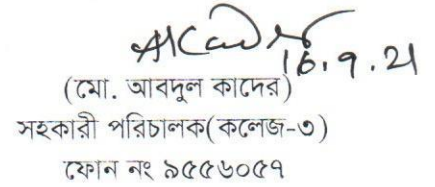 16.9.21
(মো. আবদুল কাদের)
সহকারী পরিচালক(কলেজ-৩)
ফোন নং ৯৫৫৬০৫৭